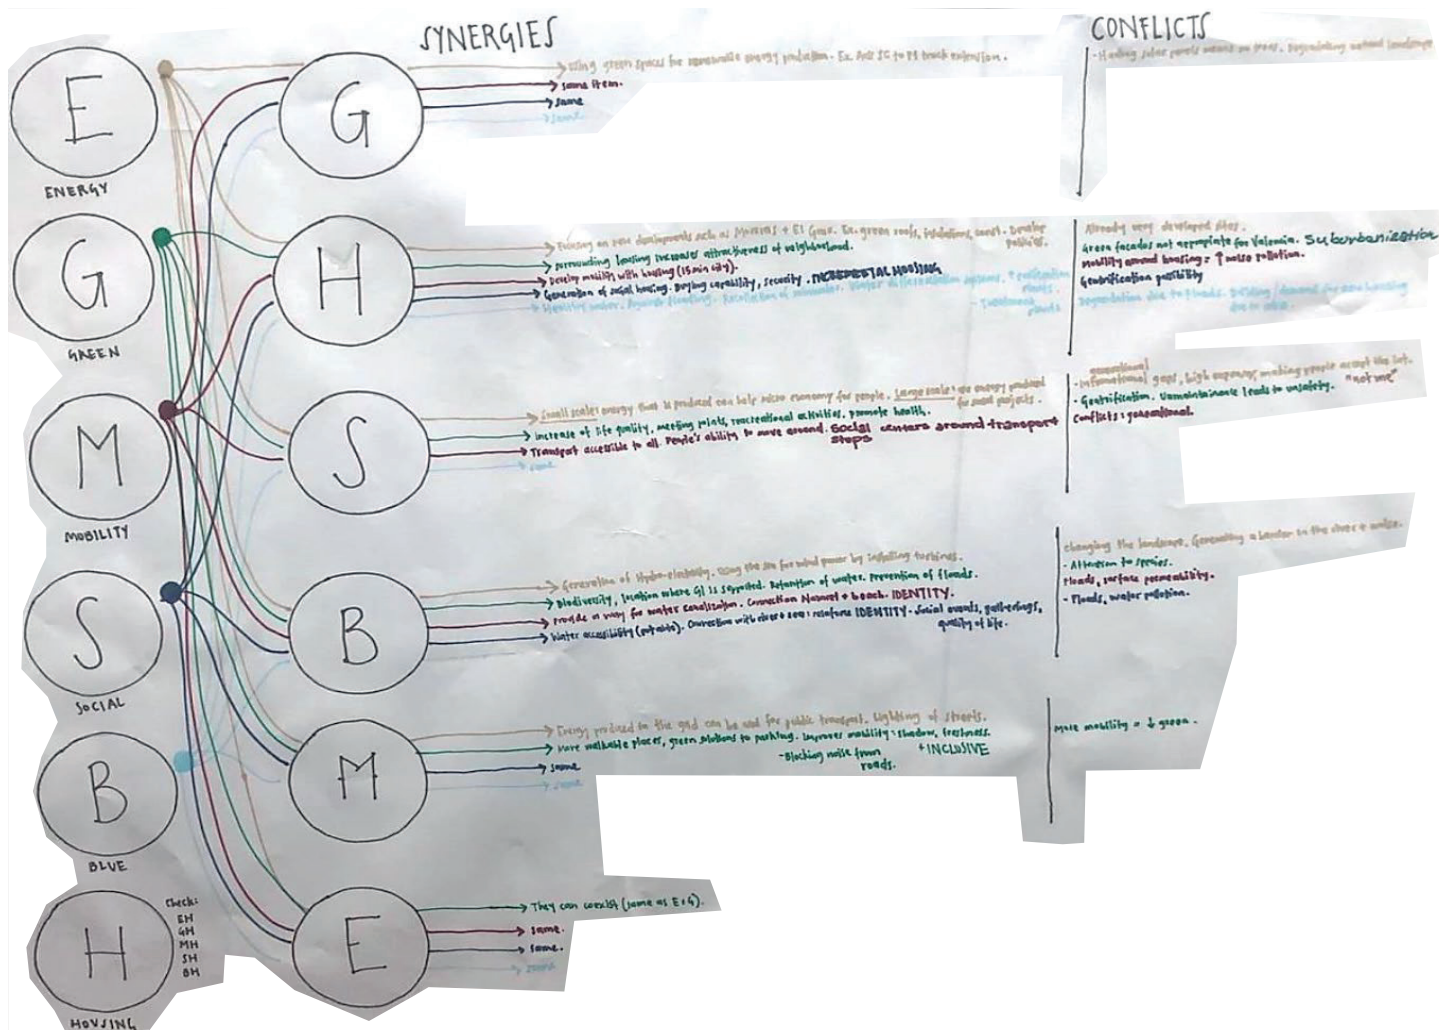 SYNERGIES
CONFLICTS
E
ENERGY
G
using green spaces for renewable energy production. Ex. Add SG to M track extension.
same item.
same
same
- Having solar panels means no trees. Degradating natural landscape
G
GREEN
H
Focusing on new developments such as Moreras + El Grao. Ex. green roofs, insulations, const. Develop policies.
Surrounding housing increases attractiveness of neighborhood.
Develop mobility with housing (15min city).
Generation of social housing. Buying capability, security. INCREMENTAL HOUSING
Against flooding. Recollection of rainwater. Water systems. ↑
plants.
- Treatment plants
Already very developed sites.
Green facades not appropiate for Valencia. Suburbanization
Mobility around housing = ↑ noise pollution.
Gentrification possibility
Degradation due to floods. Building / demand for new housing
M
MOBILITY
S
Small scale: energy that is produced can help micro economy for people. Large scale: energy produced for social projects.
Increase of life quality, meeting points, recreational activities, promote health.
Transport accessible to all. People's ability to move around. Social centers around transport stops
same
generational
- Informational gaps, high expenses, making people accept the
- Gentrification. Unmaintainance leads to unsafety. "not me"
Conflicts: generational.
S
SOCIAL
B
Generation of Hydro-electricity. Using the sea for wind power by installing turbines.
Biodiversity, location where GI is supported. Retention of water. Prevention of floods.
Provide a way for water canalization. Connection Natural + beach. IDENTITY.
Water accessibility (potable). Connection with river + sea: reinforce IDENTITY. Social events, gatherings, quality of life.
Changing the landscape. Generating a barrier in the river + noise.
- Alteration to species.
Floods, surface permeability.
- Floods, water pollution.
B
BLUE
M
Energy produced to the grid can be used for public transport. Lighting of streets.
More walkable places, green solutions to parking. Improves mobility: shadow, freshness.
- Blocking noise from roads.
+ INCLUSIVE
same
same
More mobility = ↓ green.
H
HOUSING
Check:
EH
GH
MH
SH
BH
E
They can coexist (same as E+G).
same.
same.
same